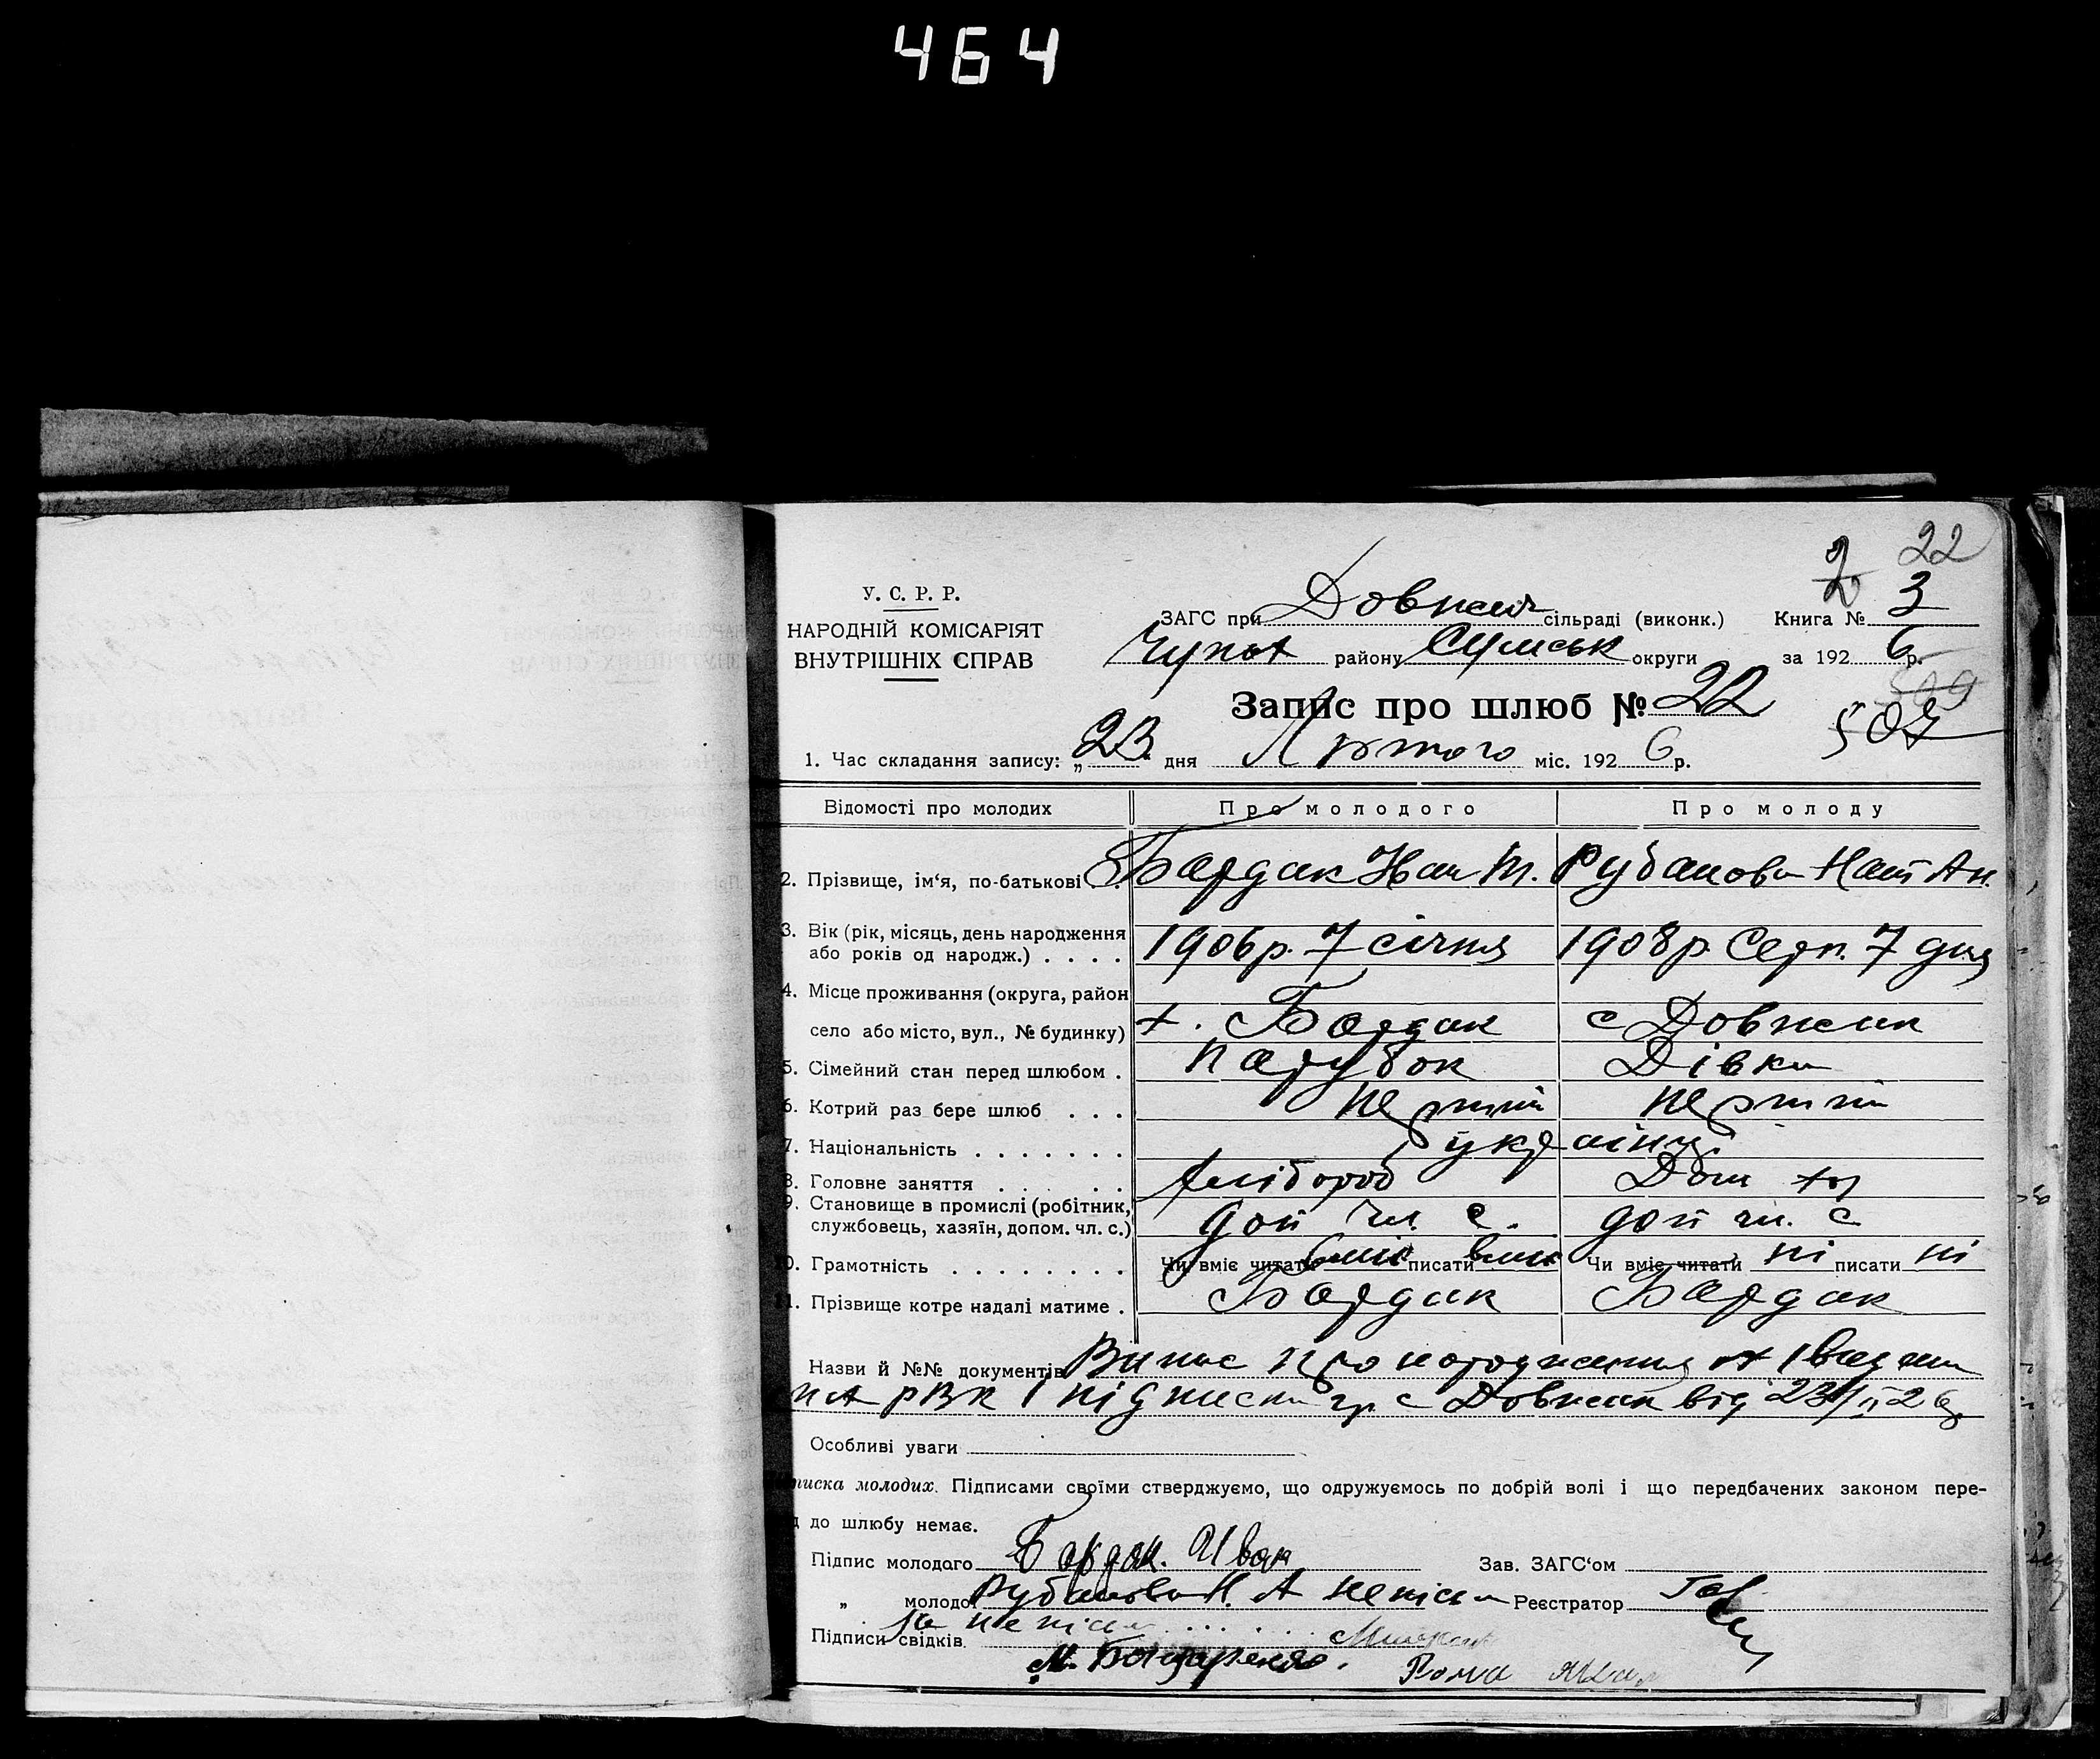 464
22
У. С. Р. Р.
НАРОДНІЙ КОМІСАРІЯТ
ВНУТРІШНІХ СПРАВ
ЗАГС при Довжич сільраді (виконк.) Книга № 3
району Сумськ округи за 192 6 р.
Запис про шлюб № 22
507
1. Час складання запису: „23" дня Лютого міс. 192 6 р.
Відомості про молодих Про молодого Про молоду
2. Прізвище, ім'я, по-батькові . Бардак Ив М. Рубанова Нат Ан.
3. Вік (рік, місяць, день народження 1906 р. 7 січня 1908 р. Серп. 7 дня
або років од народж.) . . . .
4. Місце проживання (округа, район
село або місто, вул., № будинку) х. Бардак с Довжик
5. Сімейний стан перед шлюбом . Парубок Дівка
6. Котрий раз бере шлюб . . . перший перший
7. Національність . . . . . . . українці
8. Головне заняття . . . . . . хлібороб Дом
9. Становище в промислі (робітник,
службовець, хазяїн, допом. чл. с.) доп чл. с. доп чл. с
10. Грамотність . . . . . . . . Чи вміє читати вміє писати вміє Чи вміє читати ні писати ні
11. Прізвище котре надалі матиме . Бардак Бардак
Назви й №№ документів Випис про народження
РВК і підписка гр с Довжик від 23/II 26
Особливі уваги
писка молодих. Підписами своїми стверджуємо, що одружуємось по добрій волі і що передбачених законом пере-
д до шлюбу немає.
Підпис молодого Бардак. Иван Зав. ЗАГС'ом
„ молодої Рубанова Н. А неписьм Реєстратор
за неписьм
Підписи свідків
М. Бондаренко. Рома